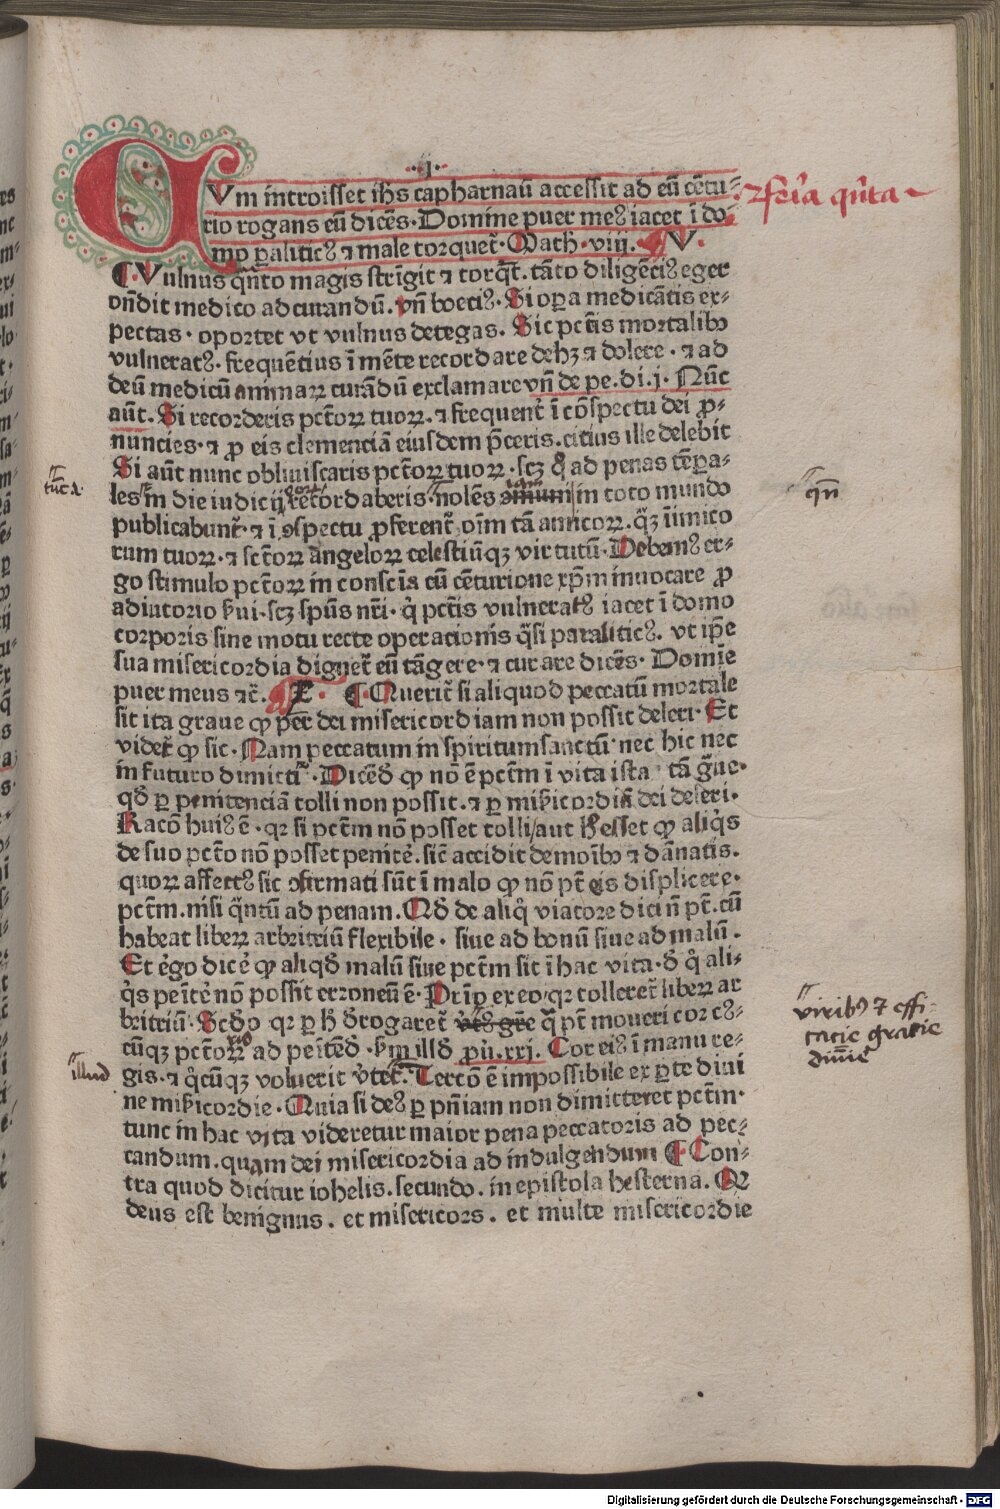 ·j·
CVm introisset ihs capharnaū accessit ad eū cētu⸗
rio rogans eū dicēs · Domine puer meꝰ iacet ī do
mo paliticꝰ ⁊ male torquet̄ · Math · viij · V ·
feria qūta
Vulnus qn̄to magis strīgit ⁊ torq̄t · tāto diligēciꝰ eger
on̄dit medico ad curandū . vn̄ boetiꝰ · Si oꝑa medicātis ex⸗
pectas · oportet vt vulnus detegas . Sic pctīs mortalibꝰ
vulneratꝰ · frequētius ī mēte recordare dehꝫ ⁊ dolere · ⁊ ad
deū medicū animaꝝ curādū exclamare vn̄ de pe . di . j · Nūc
aūt . Si recorderis pctōꝝ tuoꝝ . ⁊ frequent̄ ī cōspectu dei ꝓ⸗
nuncies · ⁊ ꝓ eis clemenciā eiusdem p̄ceris . citius ille delebit
Si aūt nunc obliuiscaris pctōꝝ tuoꝝ · scꝫ ad penas tēꝑa⸗
les in die iudicij recordaberis nolēs in toto mundo
qn̄
publicabunt̄ · ⁊ ī ꝯspectu ꝓferent̄ oīm tā amicoꝝ . qꝫ īimico
rum tuoꝝ · ⁊ sctōꝝ angeloꝝ celestiūqꝫ virtutū · Debemꝰ er⸗
go stimulo pctōꝝ in consciā cū cēturione xp̄m inuocare ꝓ
adiutorio s̄ui · scꝫ spūs nr̄i · q̇ pctīs vulneratꝰ iacet ī domo
corporis sine motu recte operacionis q̄si paraliticꝰ . vt ip̄e
sua misericordia dignet̄ eū tāgere · ⁊ curare dicēs · Domīe
puer meus ⁊c̄ . Querit̄ si aliquod peccatū mortale
sit ita graue ꝙ per dei misericordiam non possit deleri · Et
videt̄ ꝙ sic · Nam peccatum in spiritumsanctū · nec hic nec
in futuro dimictī · Dicēd̄ ꝙ nō ē pctm̄ ī vita ista tā g̊ue ·
qd̄ ꝑ penitenciā tolli non possit . ⁊ ꝑ mis̄icordiā dei deleri ·
Racō huiꝰ ē · qꝛ si pctm̄ nō posset tolli aut esset ꝙ aliq̇s
de suo pctō nō posset penitē . sic̄ accidit demoībꝰ ⁊ dānatis .
quoꝝ affectꝰ sic ꝯfirmati sūt ī malo ꝙ nō pt̄ eis displicere ·
pctm̄ . nisi q̄ntū ad penam . Qd̄ de aliq̊ viatore dici n̄ pt̄ . cū
habeat liberꝝ arbritriū flexibile · siue ad bonū siue ad malū .
Et ergo dicē ꝙ aliqd̄ malū siue pctm̄ sit ī hac vita · d̄ q̊ ali⸗
q̇s peīte nō possit erroneū ē · ex eo · qꝛ tolleret̄ liberꝝ ar
britriū · Scd̄o qꝛ ꝑ h̄ d̄rogaret̄ q̄ pt̄ moueri cor cꝰ⸗
viribꝰ ⁊ effi⸗
cacie gratie
diuine
cūqꝫ pctōꝝ ad peitēd̄ · illd̄ ꝓu . xxj . Cor eiꝰ ī manu re⸗
illud
gis · ⁊ q̊cūqꝫ voluerit v̓tet̄ . Tercō ē impossibile ex ꝑte diui
ne mis̄icordie · Quia si deꝰ ꝑ pn̄iam non dimitteret pctm̄ ·
tunc in hac vita videretur maior pena peccatoris ad pec⸗
candum . quam dei misericordia ad indulgendum Con⸗
tra quod dicitur iohelis . secundo . in epistola hesterna . Q
deus est benignus . et misericors . et multe misericordie
Digitalisierung gefördert durch die Deutsche Forschungsgemeinschaft · DFG